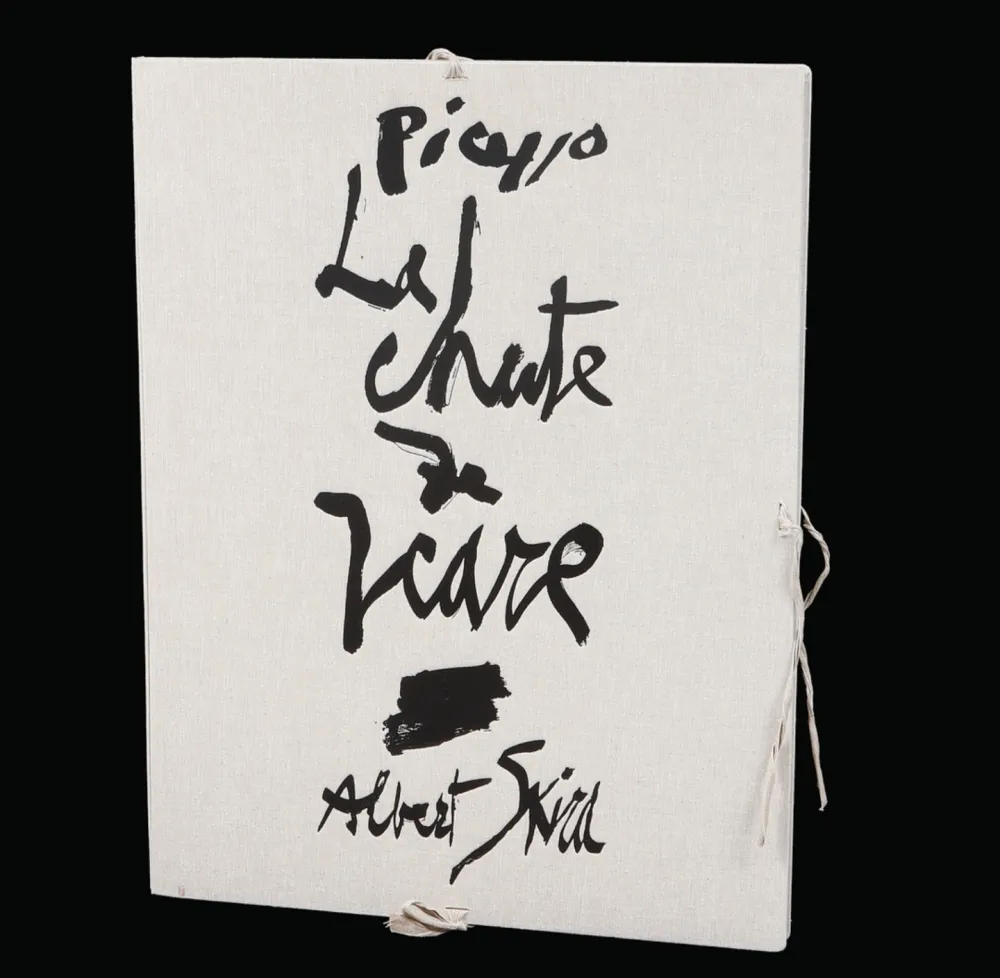 Picasso
La
chute
de
Icare
Albert Skira